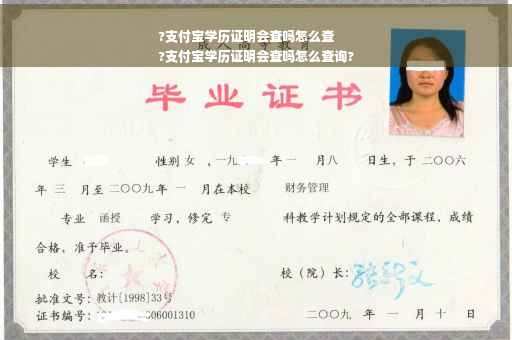 ?支付宝学历证明会查吗怎么查
成人高等教育
?支付宝学历证明会查吗怎么查询?
毕业证书
学生 性别 女 ,一九 年 一 月八 日生，于 二〇〇六
年 三 月至 二〇〇九年 一 月在本校 财务管理
专业 函授 学习，修完 专 科教学计划规定的全部课程，成绩
合格，准予毕业。
校 名： 校（院）长：
批准文号：教计[1998]33号
证书编号： 06001310 二〇〇九 年 一 月 十 日